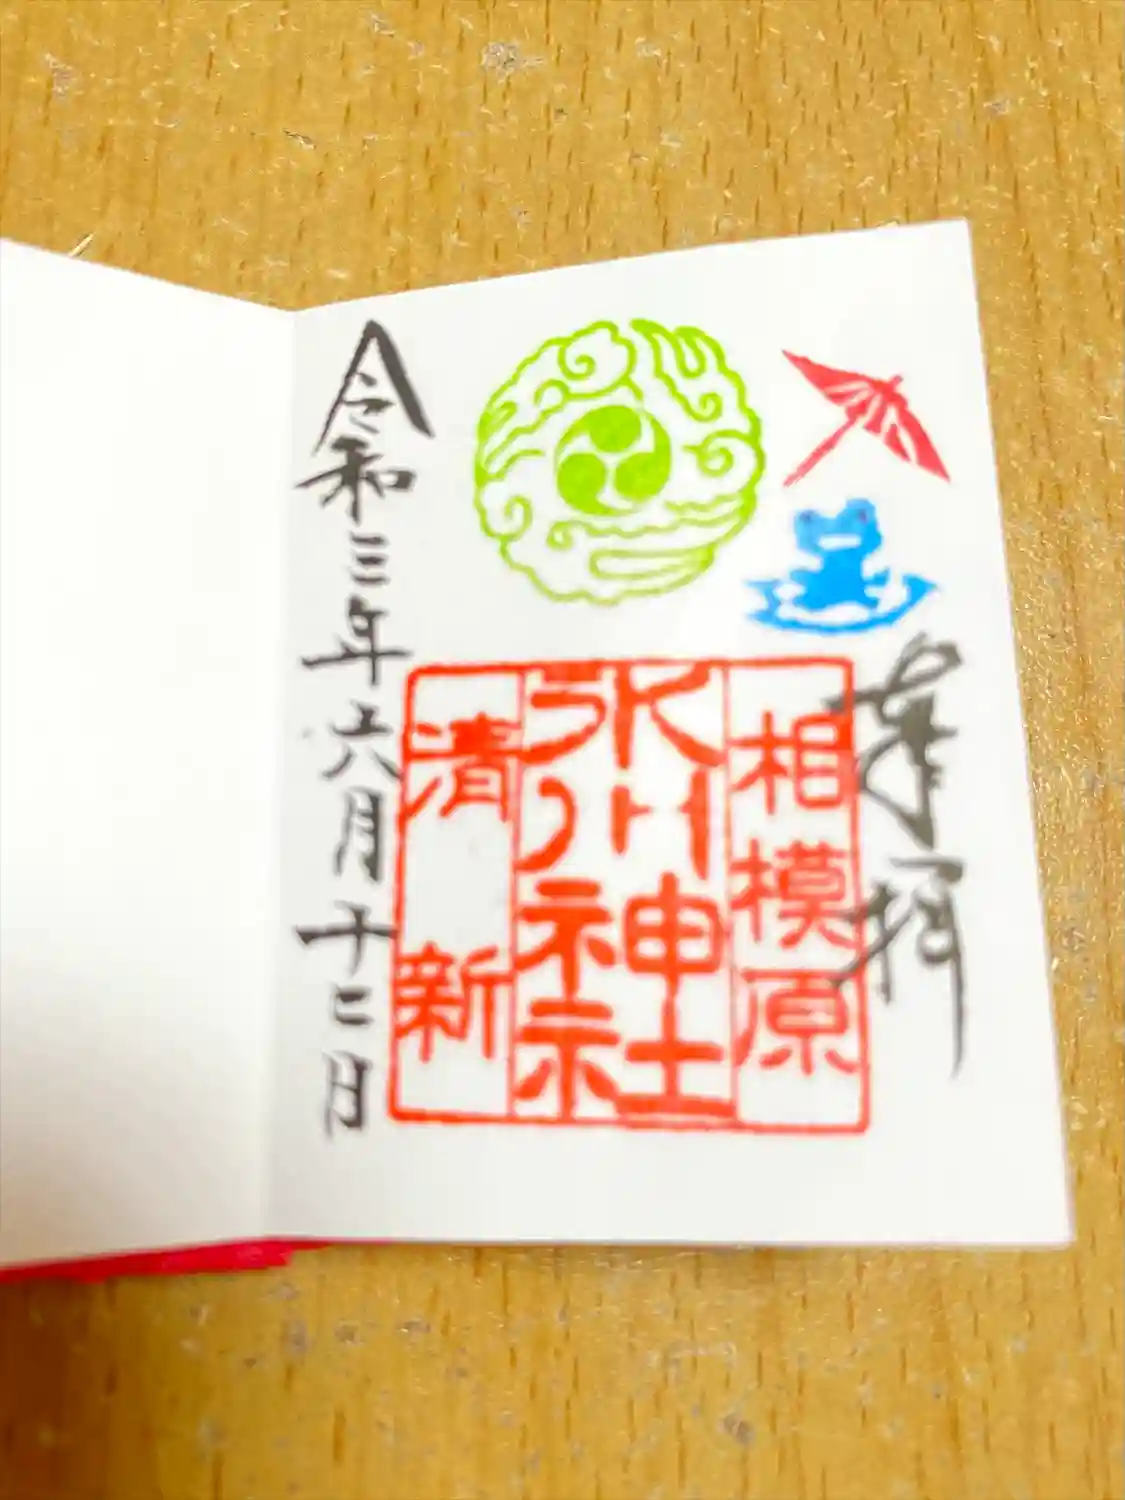 奉拝
相模原
氷川神社
清新
令和三年六月十二日